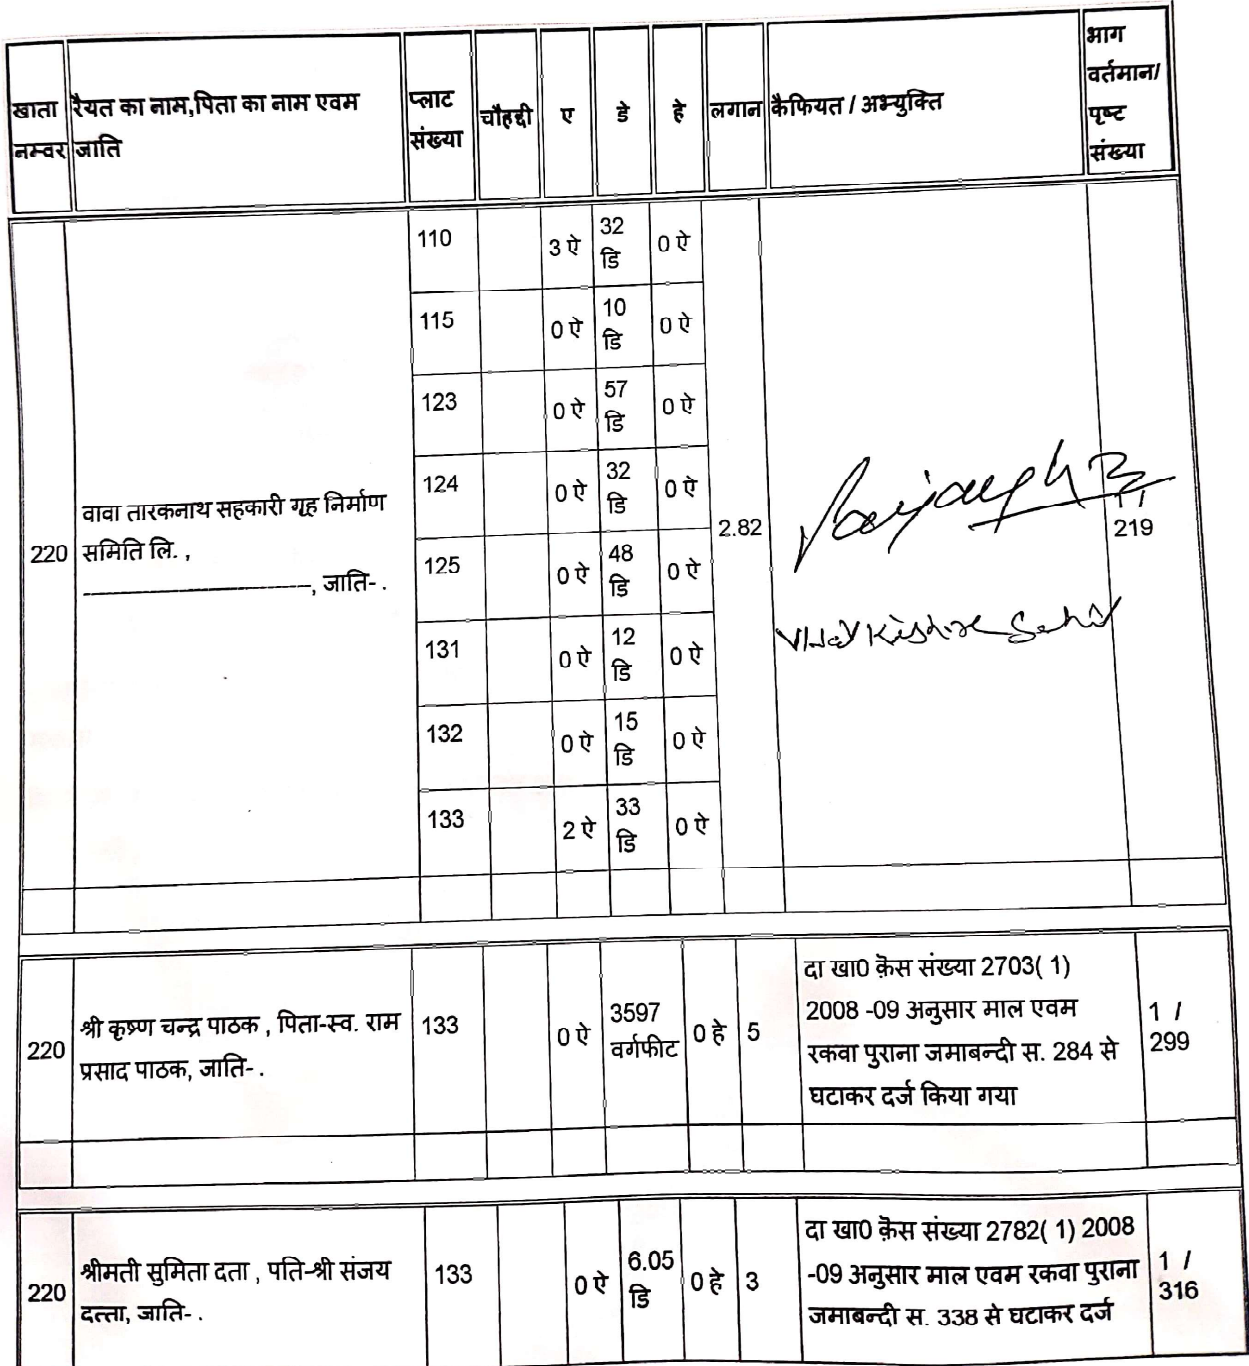 खाता नम्वर | रैयत का नाम,पिता का नाम एवम जाति | प्लाट संख्या | चौहद्दी | ए | डे | हे | लगान | कैफियत / अभ्युक्ति | भाग वर्तमान/ पृष्ट संख्या
220 | वावा तारकनाथ सहकारी गृह निर्माण समिति लि. , ----------------------------, जाति- . | 110 | | 3 ऐ | 32 डि | 0 ऐ | 2.82 | Vijay Kishore Sahu | 219
115 | | 0 ऐ | 10 डि | 0 ऐ
123 | | 0 ऐ | 57 डि | 0 ऐ
124 | | 0 ऐ | 32 डि | 0 ऐ
125 | | 0 ऐ | 48 डि | 0 ऐ
131 | | 0 ऐ | 12 डि | 0 ऐ
132 | | 0 ऐ | 15 डि | 0 ऐ
133 | | 2 ऐ | 33 डि | 0 ऐ
220 | श्री कृष्ण चन्द्र पाठक , पिता-स्व. राम प्रसाद पाठक, जाति- . | 133 | | 0 ऐ | 3597 वर्गफीट | 0 हे | 5 | दा खा0 क़ेस संख्या 2703( 1) 2008 -09 अनुसार माल एवम रकवा पुराना जमाबन्दी स. 284 से घटाकर दर्ज किया गया | 1 / 299
220 | श्रीमती सुमिता दता , पति-श्री संजय दत्ता, जाति- . | 133 | | 0 ऐ | 6.05 डि | 0 हे | 3 | दा खा0 क़ेस संख्या 2782( 1) 2008 -09 अनुसार माल एवम रकवा पुराना जमाबन्दी स. 338 से घटाकर दर्ज | 1 / 316